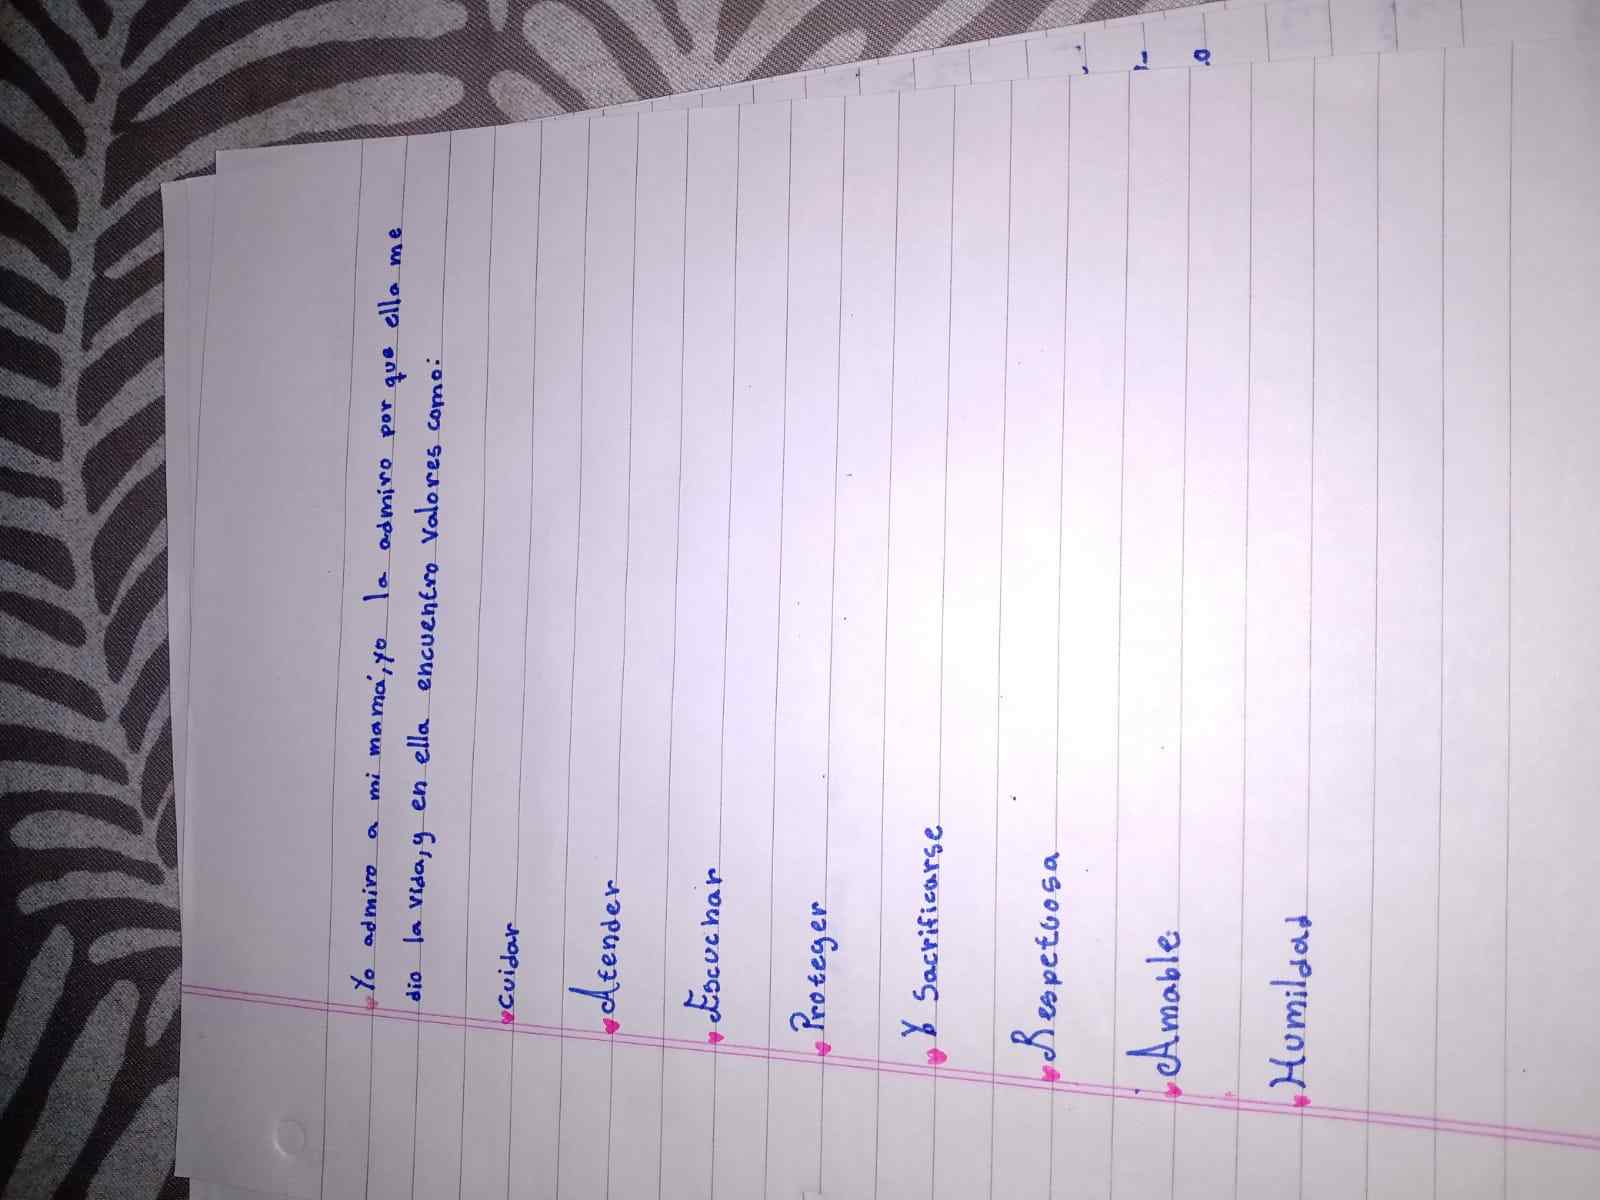 Yo admiro a mi mamá, yo la admiro por que ella me
dio la vida, y en ella encuentro valores como:
cuidar
Atender
Escuchar
Proteger
Y Sacrificarse
Respetuosa
Amable
Humildad